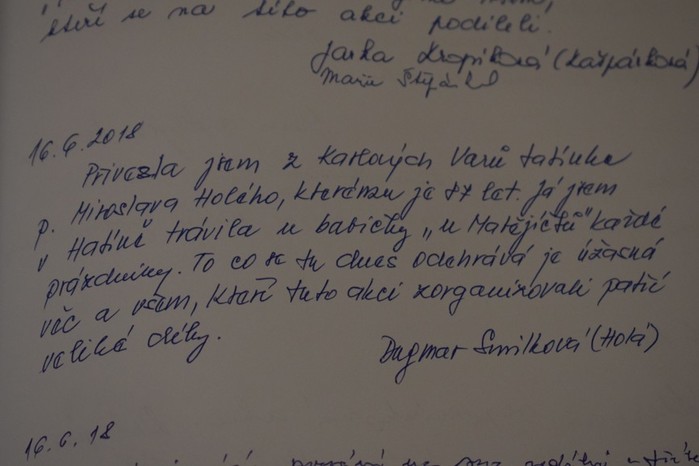 kteří se na této akci podíleli.
Jarka Kropíková (Kašpárková)
Marie
16.6.2018
Přivezla jsem z Karlových Varů tatínka
p. Miroslava Holého, kterému je 87 let. Já jsem
v Hatíně trávila u babičky „u Matějíčků" každé
prázdniny. To co se tu dnes odehrává je úžasná
věc a všem, kteří tuto akci zorganizovali patří
veliké díky.
Dagmar Smilková (Holá)
16.6.18